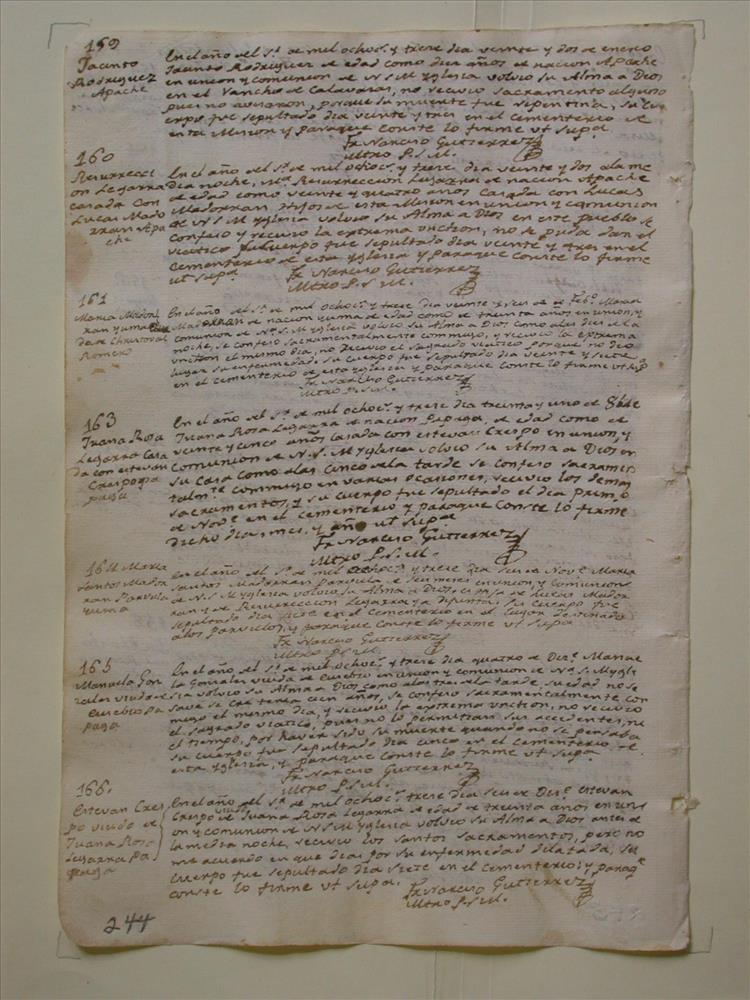 159
Jacinto
Rodriguez
Apache
En el año del Sr. de mil ochoc.s y trese dia veinte y dos de enero
Jacinto Rodriguez de edad como dies años de nacion Apache
en union y comunion de N S M Yglesia volvio su Alma a Dios
en el Rancho de Calavasas, no recivio sacramento alguno
pues no avisaron, porque su muerte fue repentina, su Cu
erpo fue sepultado dia veinte y tres en el cementerio de
esta Mision y paraque Conste lo firme ut supa
Fr Narciso Gutierrez
Mtro P. S. M.
160
Resurrecci
on Legarra
casada con
Lucas Mado
rran Apa
che
En el año del Sr. de mil ochoc.s y trese dia veinte y dos ala me
dia noche, Resurreccion Legarra de nacion Apache
de edad como veinte y quatro años Casada con Lucas
Madorran Hijos de esta Mision en union y comunion
de N S M Yglesia volvio su Alma a Dios en este pueblo se
confeso y recivio la extrema unction, no se pudo dar el
viatico su Cuerpo fue sepultado dia veinte y tres en el
Cementerio de esta Yglesia y paraque Conste lo firme
ut supa
Fr Narciso Gutierrez
Mtro P. S. M.
161
Maria Mador
ran yuma
da de Christoval
Romero
En el año del Sr. de mil ochoc.s y trese dia veinte y seis de Feb.o Maria
Madorran de nacion yuma de edad como de treinta años en union, y
comunion de N. S. M Yglesia volvio su Alma a Dios como alas dies de la
noche, se confeso sacramentalmente commigo, y recivio la extrema
unction el mismo dia, no recivio el sagrado viatico porque no dio
lugar su enfermedad, su Cuerpo fue sepultado dia veinte y siete
en el cementerio de esta Yglesia y paraque Conste lo firme ut supa
Fr Narciso Gutierrez
Mtro P. S. M.
163
Juana Rosa
Legarra Casa
da con estevan
Crespo pa
paga
En el año del Sr. de mil ochoc.s y trese dia treinta y uno de 8bre
Juana Rosa Legarra de nacion Papaga, de edad como de
veinte y cinco años casada con estevan Crespo en union, y
comunion de N. S. M Yglesia volvio su Alma a Dios en
su Casa como alas cinco dela tarde se confeso sacramen
talm.te commigo en varias ocasiones, recivio los demas
sacramentos, y su cuerpo fue sepultado el dia primo
de Nov.e en el cementerio y paraque Conste lo firme
dicho dia, mes, y año ut supa
Fr Narciso Gutierrez
Mtro P. S. M.
164 Maria
Santos Mador
ran Parvula
yuma
En el año del Sr. de mil ochoc.s y trese dia seis de Nov.e Maria
Santos Madorran Parvula de seis meses en union, y Comunion
de N. S M Yglesia volvio su Alma a Dios, es hija de Lucas Mador
ran y de Resurreccion Legarra ya difunta, su Cuerpo fue
sepultado dia siete en el Cementerio en el lugar destinado
alos parvulos, y paraque Conste lo firme ut supa
Fr Narciso Gutierrez
Mtro P. S. M.
165
Manuela Gon
zales viuda de
Eusebio Pa
paga
En el año del Sr. de mil ochoc.s y trese dia quatro de Di.e Manue
la Gonzales viuda de Eusebio en union y comunion de N. S. M Ygle
sia volvio su Alma a Dios como alas tres dela tarde, su edad no se
save se cre tenia cien años, se confeso sacramentalmente con
migo el mismo dia, y recivio la extrema unction, no recivio
el sagrado viatico, pues no lo permitian sus accidentes, ni
el tiempo, por haver sido su muerte quando no se pensaba
su cuerpo fue sepultado dia cinco en el cementerio de
esta Yglesia, y paraque Conste lo firme ut supa
Fr Narciso Gutierrez
Mtro P. S. M.
166.
Estevan Cres
po viudo de
Juana Rosa
Legarra Pa
paga
En el año del Sr. de mil ochoc.s trese dia seis de Di.e estevan
Crespo viudo de Juana Rosa Legarra de edad de treinta años en uni
on y comunion de N S M Yglesia volvio su Alma a Dios antes de
la media noche, recivio los santos sacramentos, pero no
me acuerdo en que dias por su enfermedad dilatada, su
cuerpo fue sepultado dia siete en el cementerio; y paraq.e
conste lo firme ut supa.
Fr Narciso Gutierrez
Mtro P. S. M.
244